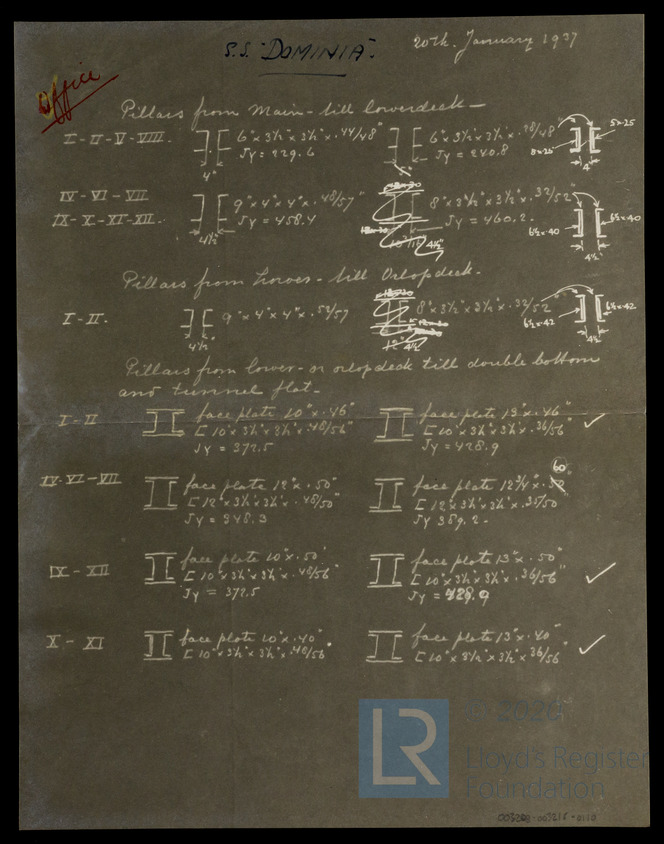 S.S. "DOMINIA".
20th. January 1937
Office
Pillars from Main- till lowerdeck —
I-II-V-VIII. 6"x 3½"x 3½"x .44/48" 6"x 3½"x 3½"x .28/48" 5x.25
Jy = 229.6 Jy = 240.8 5x.25
4" 4"
IV-VI-VII 9"x 4"x 4"x .48/57" 8"x 3½"x 3½"x .32/52"
IX-X-XI-XII. Jy = 458.4 Jy = 460.2. 6½x.40
4½" 4½" 6½x.40 4½"
Pillars from Lower- till Orlopdeck.
I-II. 9"x 4"x 4"x .53/57 8"x 3½"x 3½"x .32/52 6½x.42
4½" 4½ 6½x.42 4½
Pillars from lower- or orlopdeck till double bottom
and tunnel flat.
I-II face plate 10"x .46" face plate 13"x .46"
[ 10"x 3½"x 3½"x .48/56" [ 10"x 3½"x 3½"x .36/56"
Jy = 372.5 Jy = 428.9
IV-VI-VII face plate 12"x .50" face plate 12¾"x 60
[ 12"x 3½"x 3½"x .48/50" [ 12x 3½"x 3½"x .35/50
Jy = 348.3 Jy 389.2.
IX-XII face plate 10"x .50" face plate 13"x .50"
[ 10"x 3½"x 3½"x .48/56" [ 10"x 3½"x 3½"x .36/56"
Jy = 372.5 Jy = 428.9
X-XI face plate 10"x .40" face plate 13"x .40"
[ 10"x 3½"x 3½"x .48/56" [ 10"x 3½"x 3½"x .36/56
LR © 2020
Lloyd's Register
Foundation
003209-003216-0110